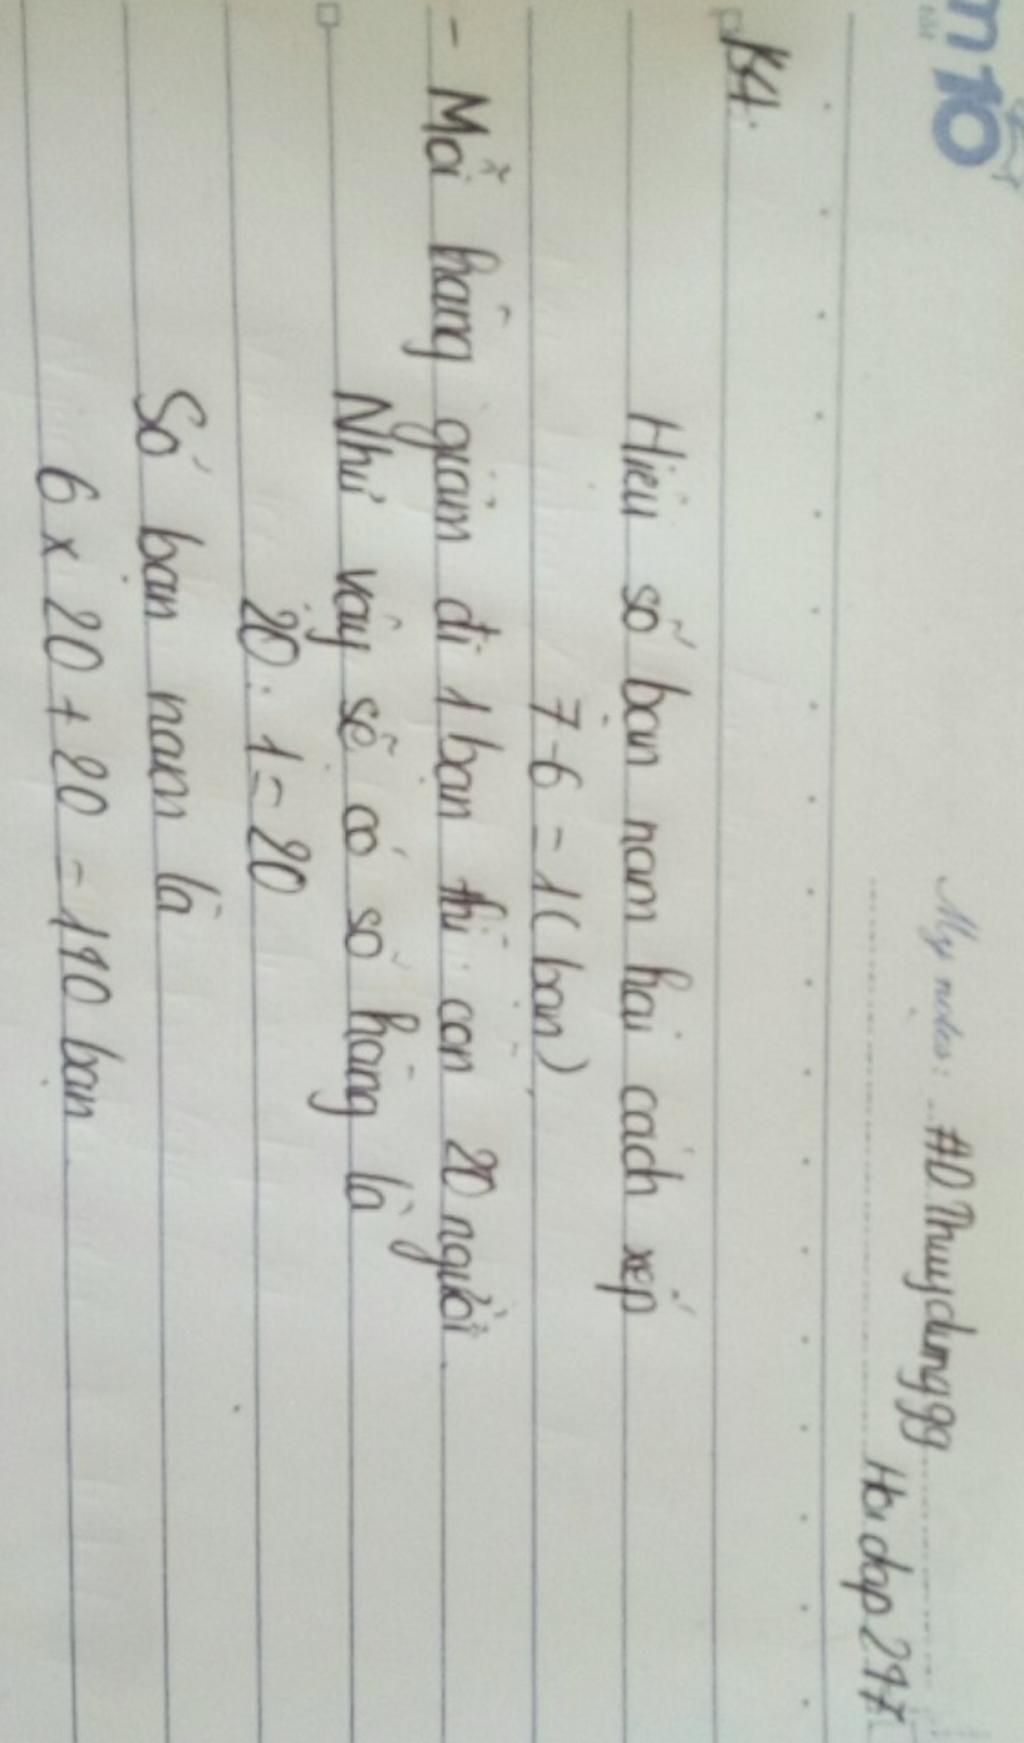 m 10
My notes: AD Thuydung99
Hoidap247
B4:
Hiệu số bạn nam hai cách xếp
7-6 = 1 (bạn)
- Mỗi hàng giảm đi 1 bạn thì còn 20 người.
Như vậy sẽ có số hàng là
20 : 1 = 20
Số bạn nam là
6 x 20 + 20 = 140 bạn